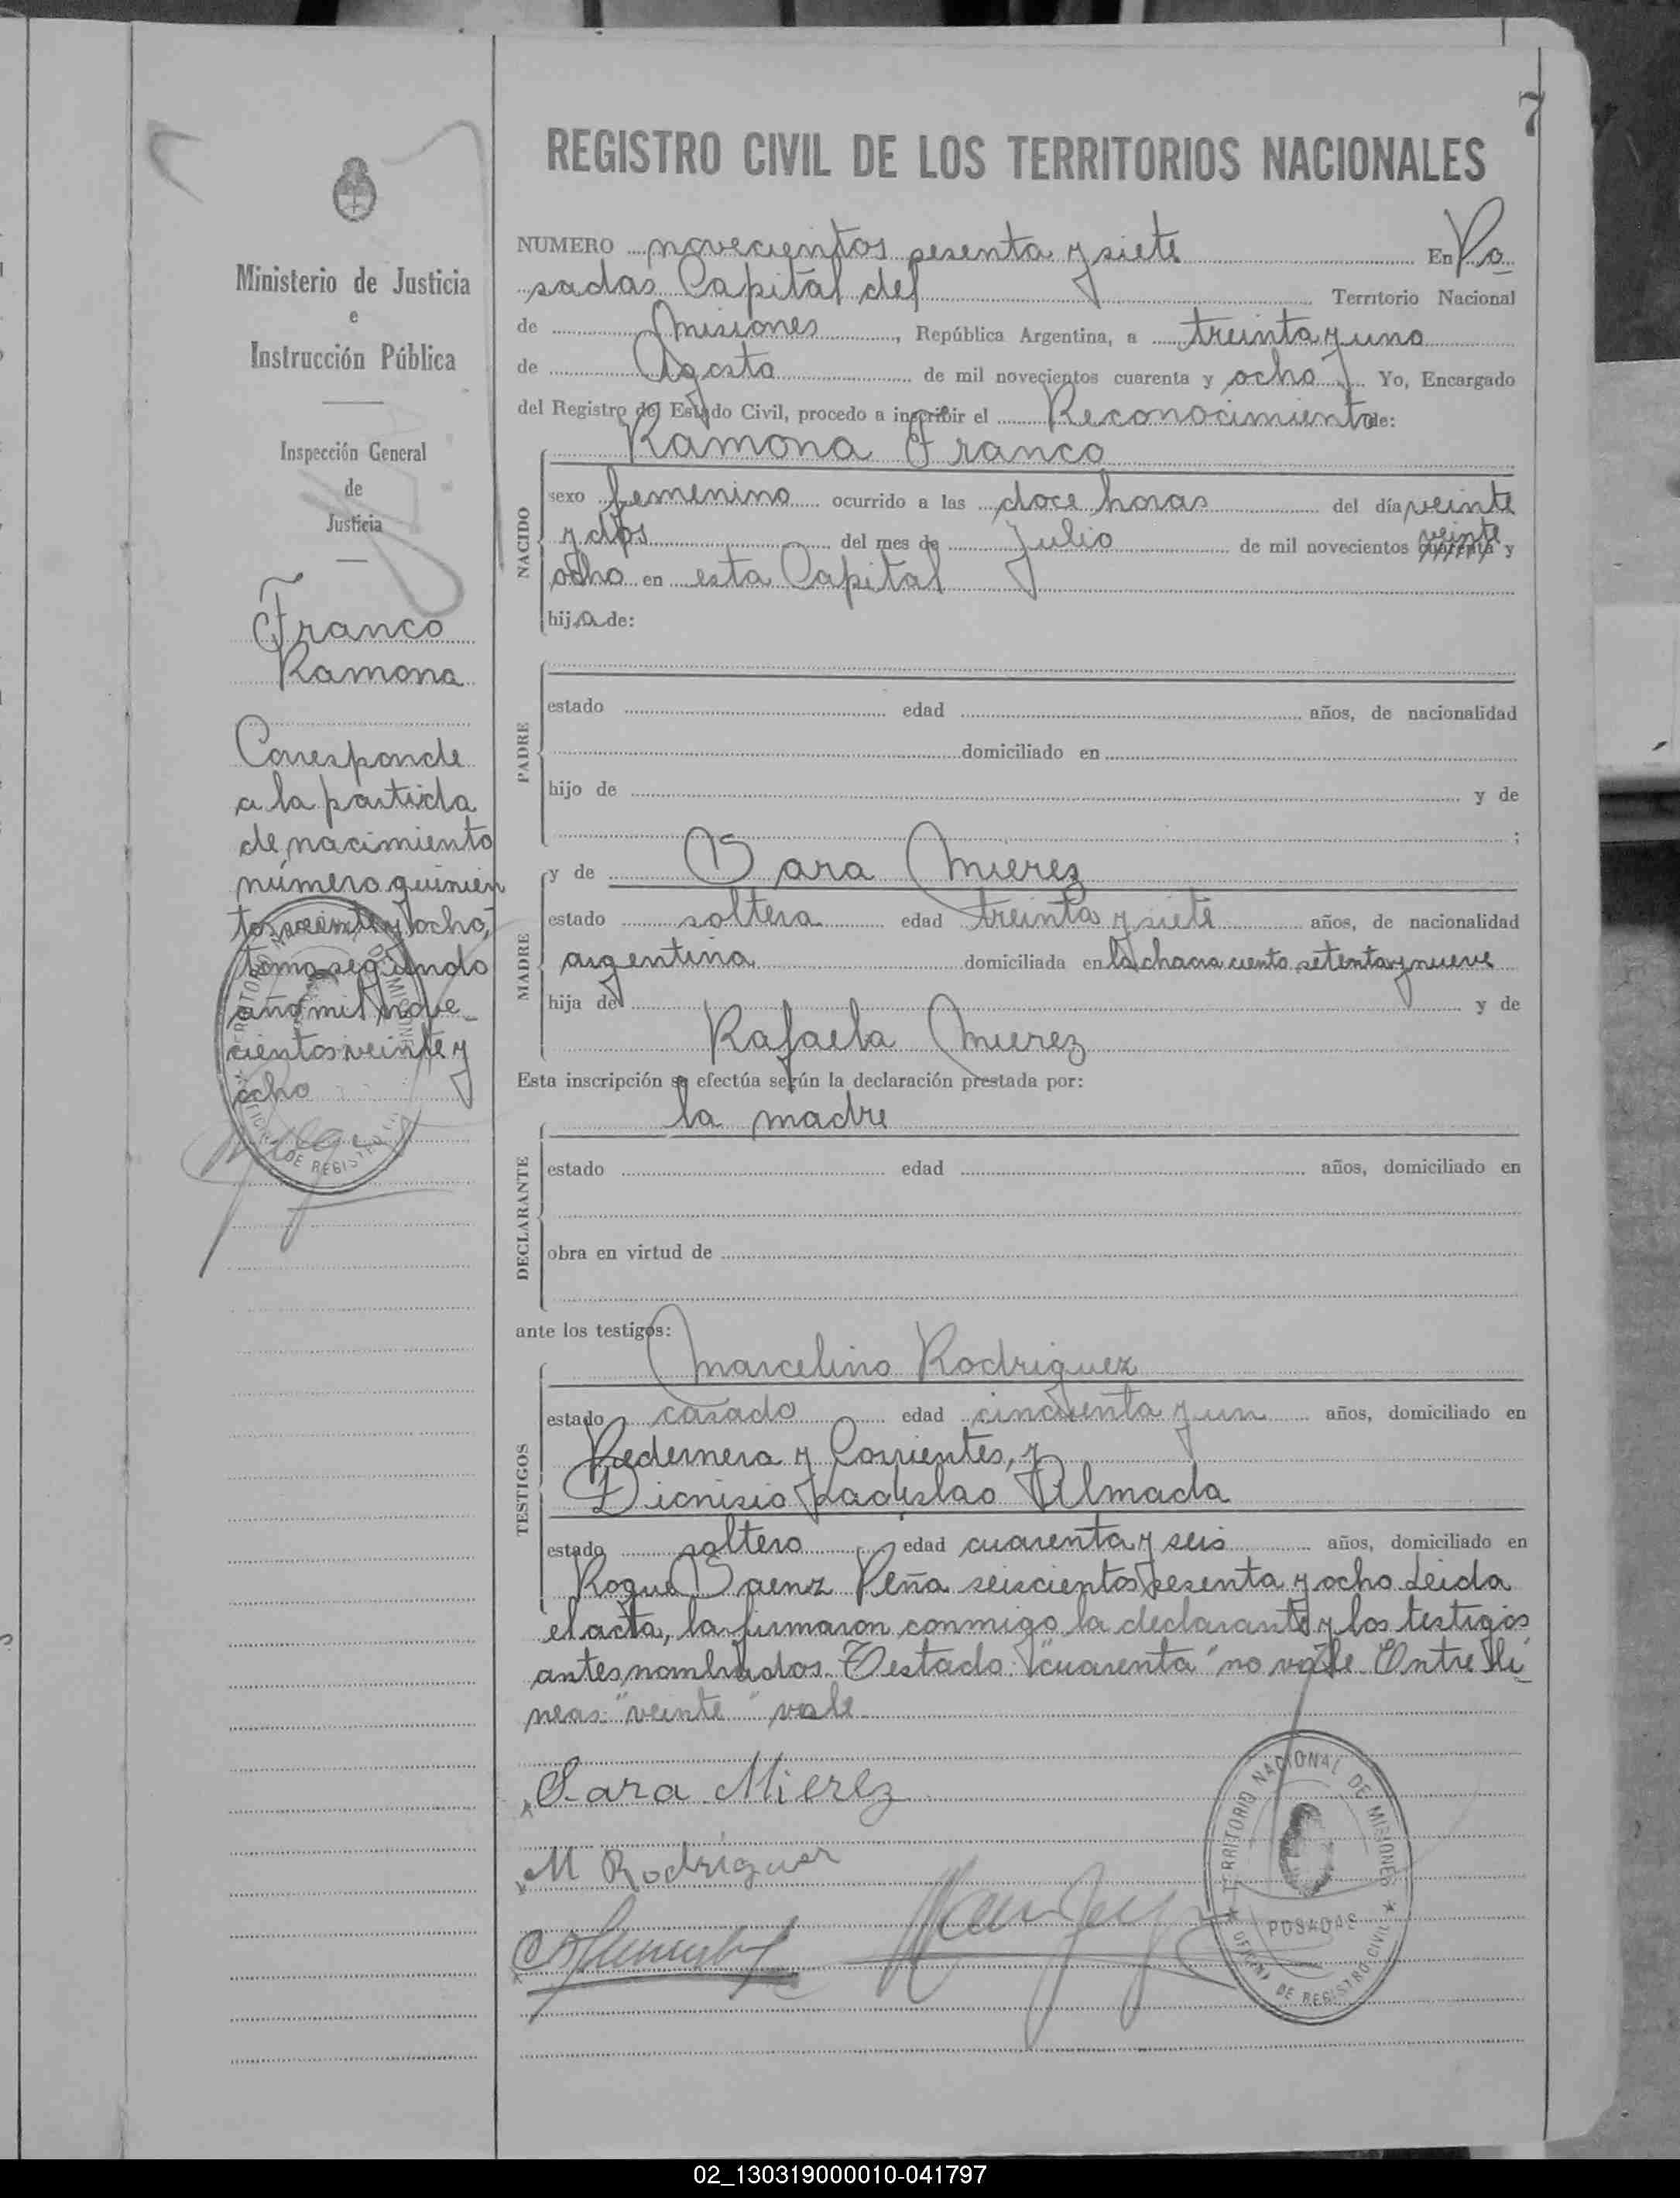 7
REGISTRO CIVIL DE LOS TERRITORIOS NACIONALES
Ministerio de Justicia
e
Instrucción Pública
Inspección General
de
Justicia
Franco
Ramona
Corresponde
a la partida
de nacimiento
número quinien
tos veinte y ocho,
tomo segundo
año mil nove_
cientos veinte y
ocho
NUMERO novecientos sesenta y siete En Po
sadas Capital del Territorio Nacional
de Misiones, República Argentina, a treinta y uno
de Agosto de mil novecientos cuarenta y ocho Yo, Encargado
del Registro del Estado Civil, procedo a inscribir el Reconocimiento de:
Ramona Franco
NACIDO
sexo femenino ocurrido a las doce horas del día veinte
y dos del mes de Julio de mil novecientos cuarenta veinte y
ocho en esta Capital
hija de:
PADRE
estado edad años, de nacionalidad
domiciliado en
hijo de y de
;
MADRE
y de Sara Mierez
estado soltera edad treinta y siete años, de nacionalidad
argentina domiciliada en la chacra ciento setenta y nueve
hija de y de
Rafaela Mierez
Esta inscripción se efectúa según la declaración prestada por:
la madre
DECLARANTE
estado edad años, domiciliado en
obra en virtud de
ante los testigos:
TESTIGOS
Marcelino Rodriguez
estado casado edad cincuenta y un años, domiciliado en
Pedernera y Corrientes, y
Dionisio Ladislao Almada
estado soltero edad cuarenta y seis años, domiciliado en
Roque Saenz Peña seiscientos sesenta y ocho Leida
el acta, la firmaron conmigo la declarante y los testigos
antes nombrados. Testado: "cuarenta" no vale. Entre li
neas: "veinte" vale
Sara Mierez
M Rodriguez
TERRITORIO NACIONAL DE MISIONES
POSADAS
OFICINA DE REGISTRO CIVIL
02_130319000010-041797